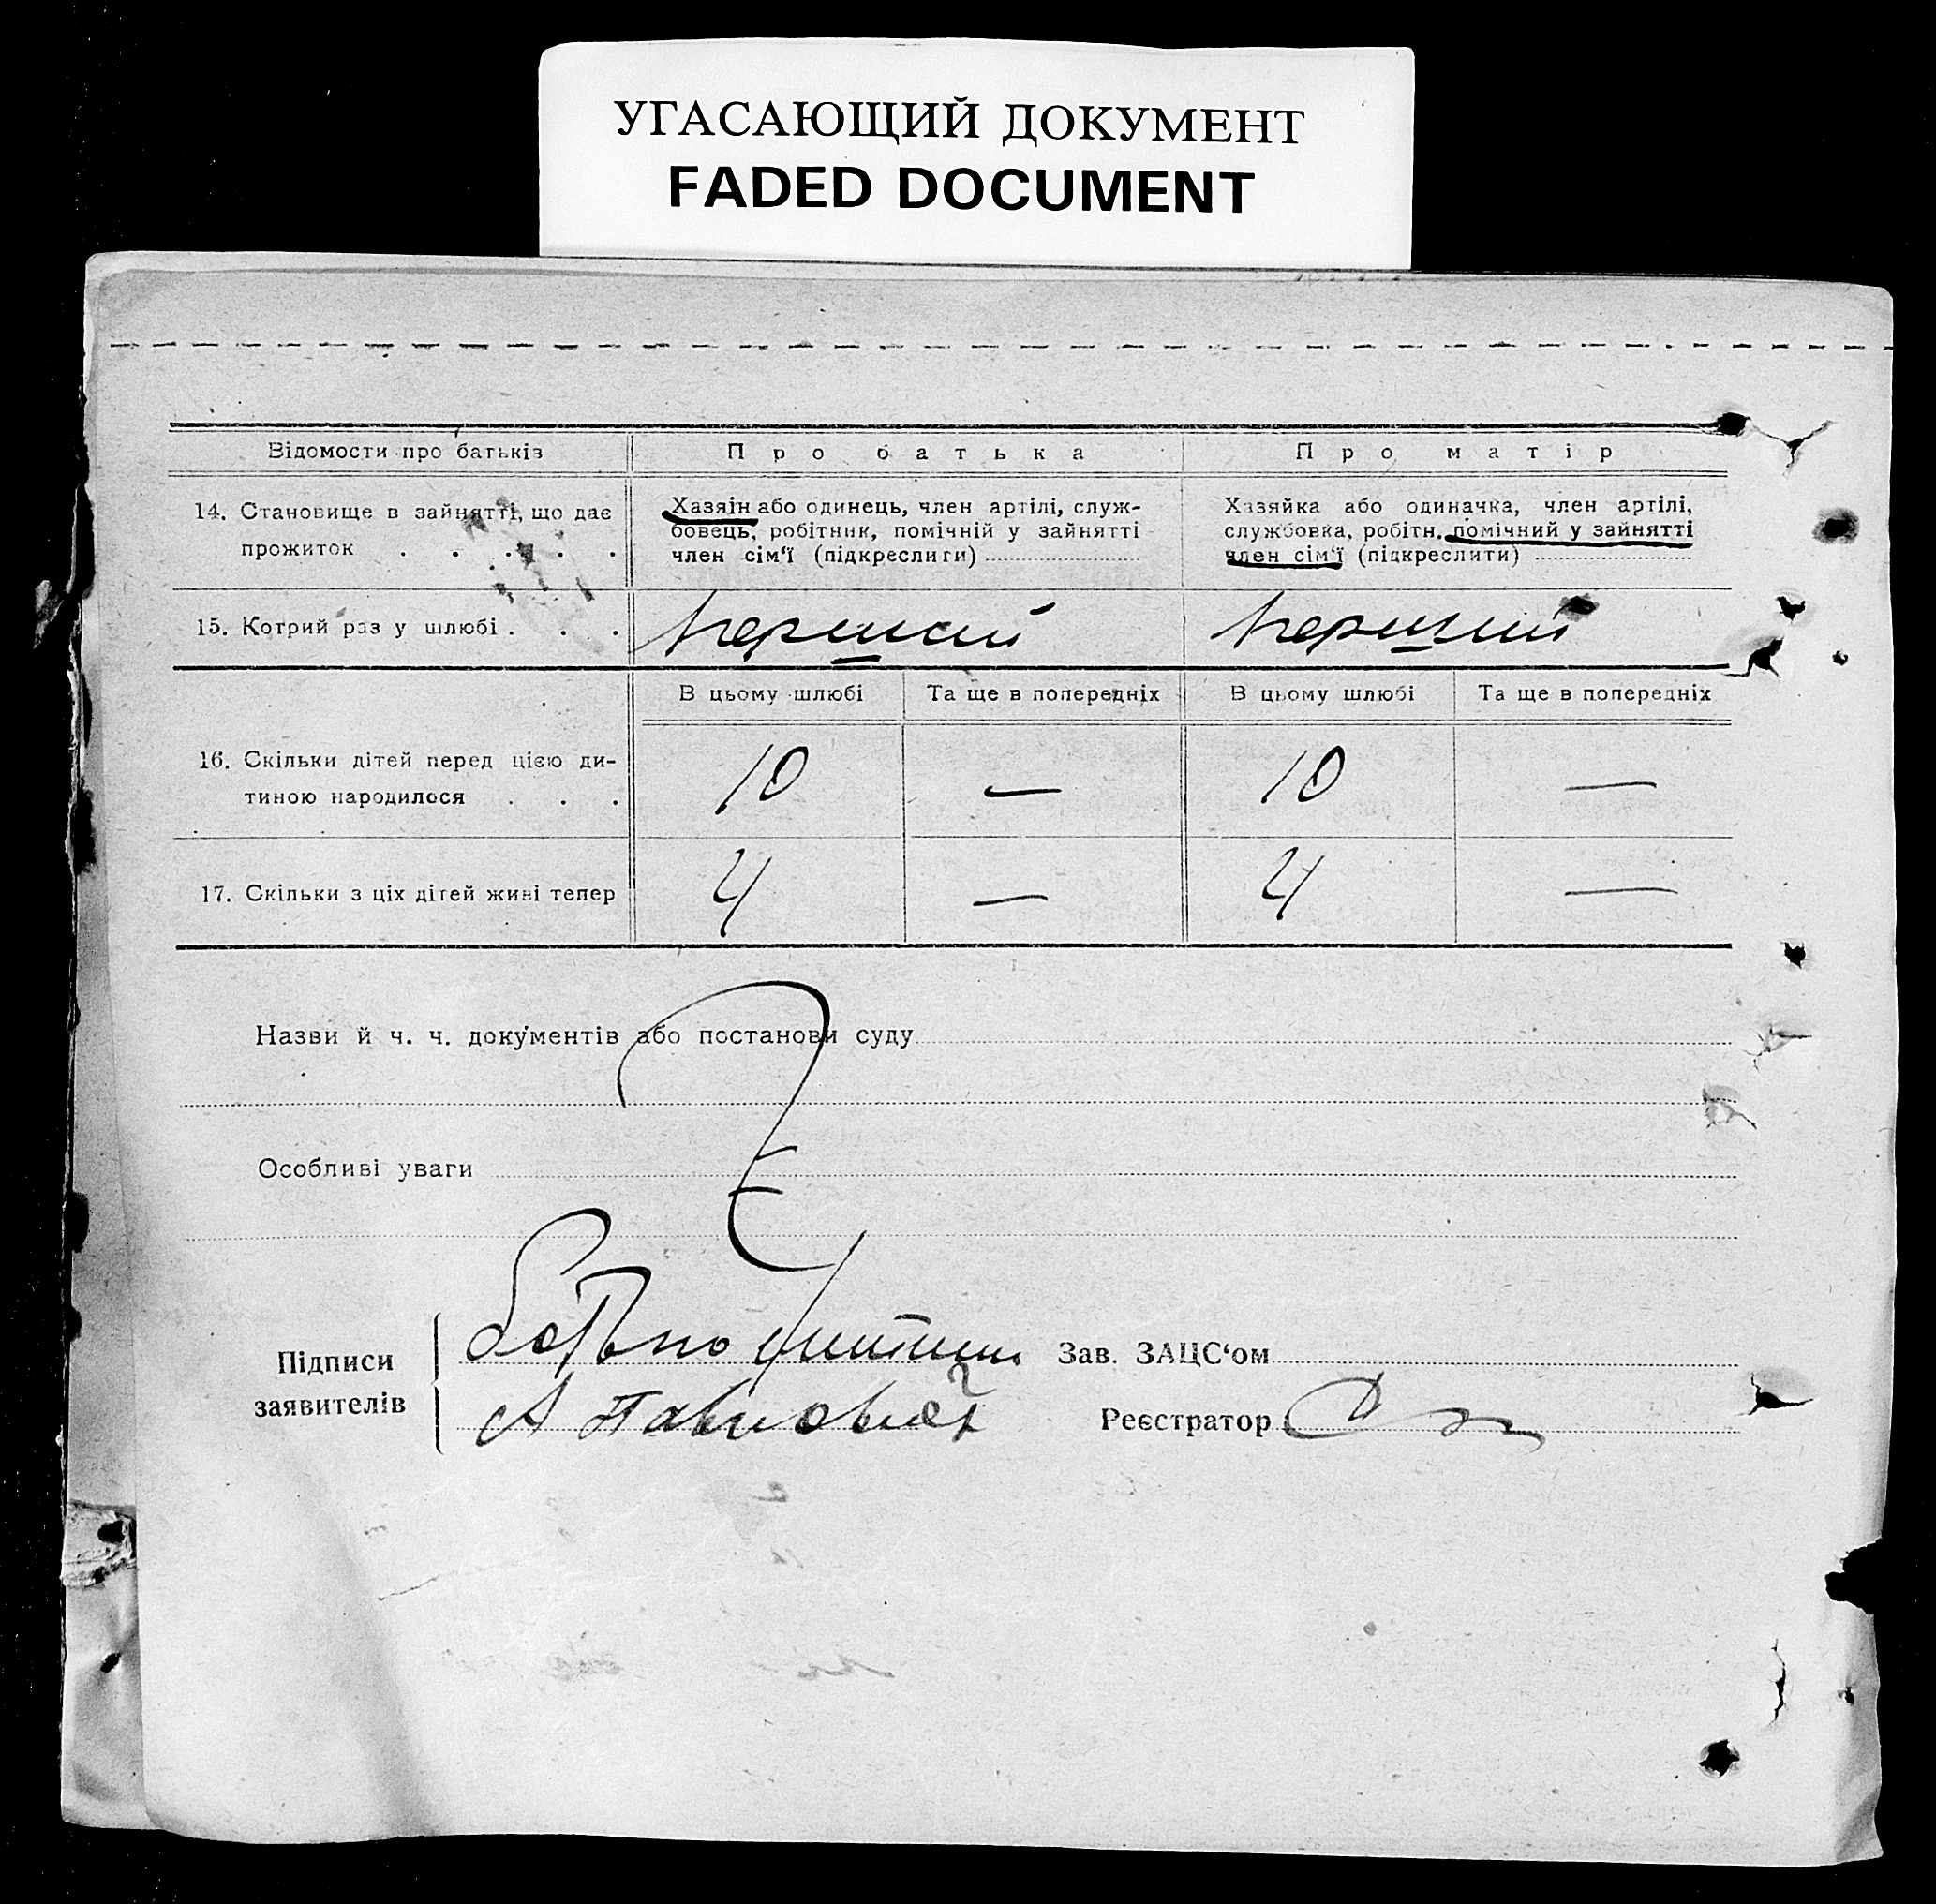 УГАСАЮЩИЙ ДОКУМЕНТ
FADED DOCUMENT
Відомости про батьків
Про батька
Про матір
14. Становище в зайнятті, що дає
прожиток . . . . .
Хазяін або одинець, член артілі, служ-
бовець, робітник, помічній у зайнятті
член сім'ї (підкреслити)
Хазяйка або одиначка, член артілі,
службовка, робітн. помічний у зайнятті
член сім'ї (підкреслити)
15. Котрий раз у шлюбі . . .
перший
перший
В цьому шлюбі
Та ще в попередніх
В цьому шлюбі
Та ще в попередніх
16. Скільки дітей перед цією ди-
тиною народилося . . .
10
—
10
—
17. Скільки з ціх дітей живі тепер
4
—
4
—
Назви й ч. ч. документів або постанови суду
Особливі уваги
Підписи
заявителів
Зав. ЗАЦС'ом
Реєстратор